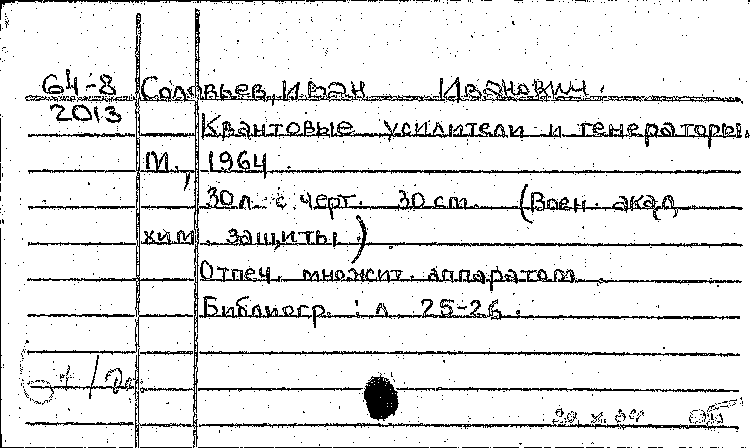 64-8 Соловьев, Иван Иванович.
2013
Квантовые усилители и генераторы.
М., 1964.
30 л. с черт. 30 cm. (Воен. акад.
хим. защиты)
Отпеч. множит. аппаратом.
Библиогр.: л. 25-26.